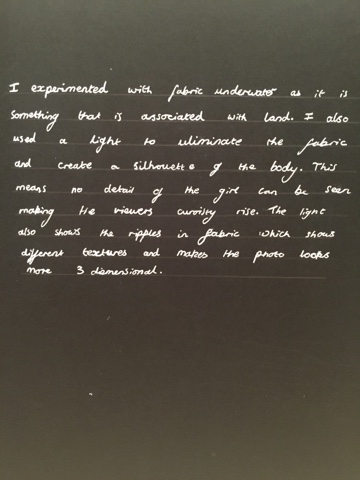 I experimented with fabric underwater as it is
something that is associated with land. I also
used a light to uliminate the fabric
and create a silhouette of the body. This
means no detail of the girl can be seen
making the viewers curoisty rise. The light
also shows the ripples in fabric which shows
different textures and makes the photo looks
more 3 diemensional.